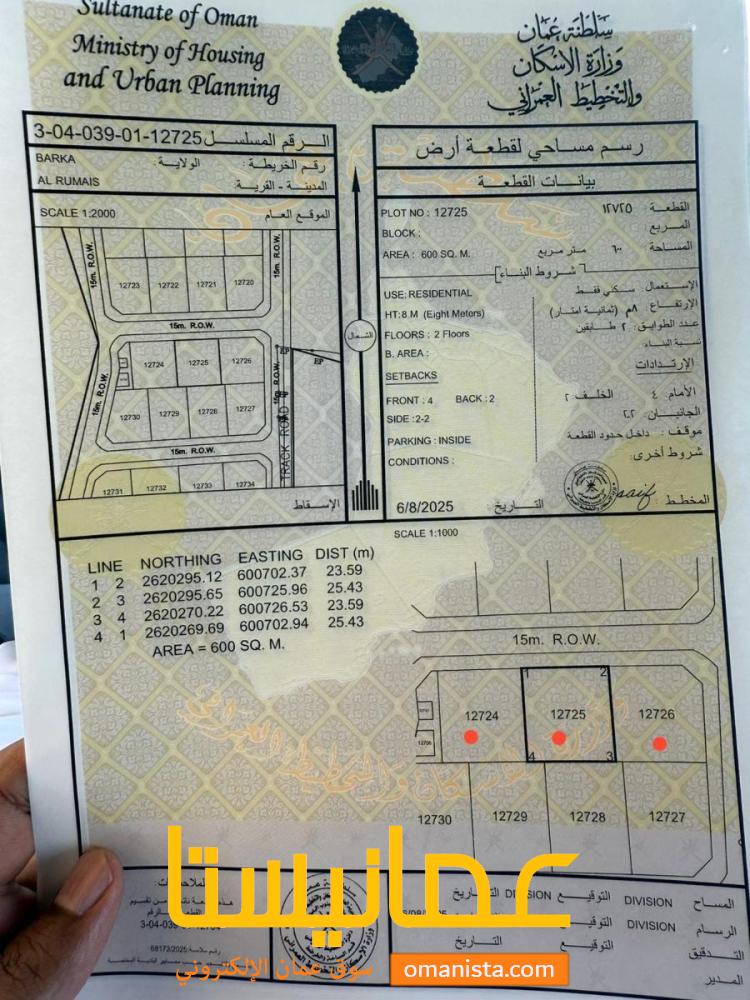 Sultanate of Oman
Ministry of Housing
and Urban Planning
سلطنة عمان
وزارة الاسكان
والتخطيط العمراني
3-04-039-01-12725 الرقم المسلسل
BARKA الولاية: رقم الخريطة :
AL RUMAIS المدينة - القرية:
SCALE 1:2000 الموقع العام
15m. R.O.W.
15m. R.O.W.
12723 12722 12721 12720
15m. R.O.W.
12724 12725 12726
EP
EP
15m. R.O.W.
12730 12729 12728 12727
TRACK ROAD
15m. R.O.W.
12731 12732 12733 12734
الإسقاط
الشمال
رسم مساحي لقطعة أرض
بيانات القطعة
PLOT NO : 12725 القطعة : ١٢٧٢٥
BLOCK : المربع :
AREA : 600 SQ. M. المساحة : ٦٠٠ متر مربع
شروط البناء
USE: RESIDENTIAL الإستعمال: سكني فقط
HT: 8 M (Eight Meters) الإرتفاع : ٨م (ثمانية امتار)
FLOORS : 2 Floors عدد الطوابق: ٢ طابقين
B. AREA : نسبة البناء
SETBACKS الإرتدادات
FRONT : 4 BACK : 2 الأمام: ٤ الخلف: ٢
SIDE : 2-2 الجانبان: ٢-٢
PARKING : INSIDE موقف: داخل حدود القطعة
CONDITIONS : شروط أخرى:
6/8/2025 التاريخ المخطط
SCALE 1:1000
LINE NORTHING EASTING DIST (m)
1 2 2620295.12 600702.37 23.59
2 3 2620295.65 600725.96 25.43
3 4 2620270.22 600726.53 23.59
4 1 2620269.69 600702.94 25.43
AREA = 600 SQ. M.
15m. R.O.W.
1 2
12724 12725 12726
4 3
12730 12729 12728 12727
عمانيستا
سوق عمان الإلكتروني omanista.com
الملاحظات:
68173/2025
المساح DIVISION التوقيع DIVISION التاريخ
الرسام DIVISION التوقيع
التدقيق التوقيع التاريخ
المدير